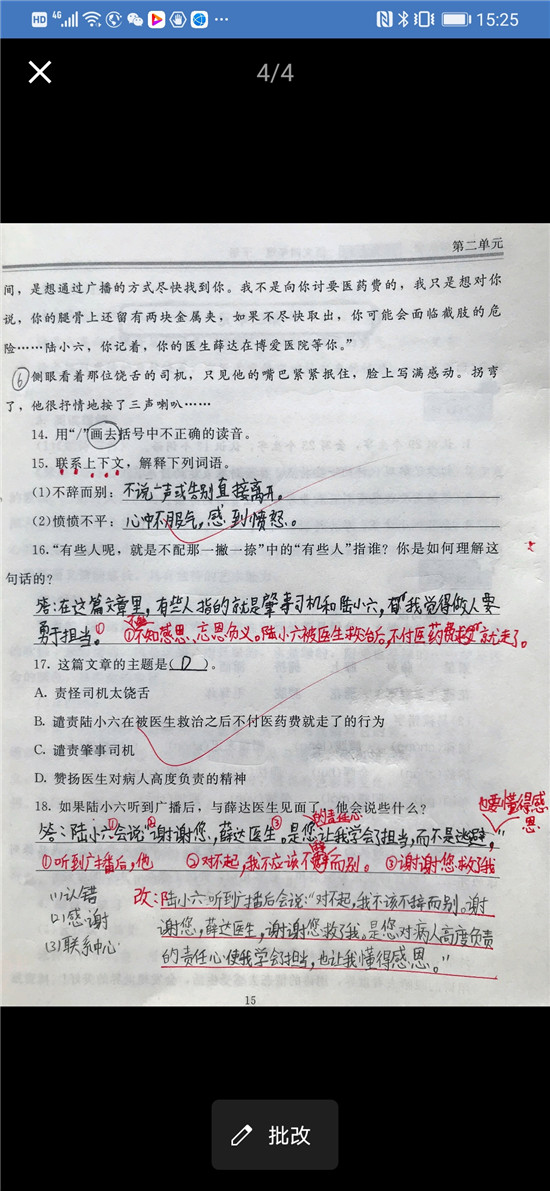 HD 4G 15:25
4/4
第二单元
间，是想通过广播的方式尽快找到你。我不是向你讨要医药费的，我只是想对你
说，你的腿骨上还留有两块金属夹，如果不尽快取出，你可能会面临截肢的危
险……陆小六，你记着，你的医生薛达在博爱医院等你。”
⑥侧眼看着那位饶舌的司机，只见他的嘴巴紧紧抿住，脸上写满感动。拐弯
了，他很抒情地按了三声喇叭……
14. 用“/”画去括号中不正确的读音。
15. 联系上下文，解释下列词语。
(1)不辞而别：不说一声或告别直接离开。
(2)愤愤不平：心中不服气，感到愤怒。
16.“有些人呢，就是不配那一撇一捺”中的“有些人”指谁？你是如何理解这
句话的？
答：在这篇文章里，有些人指的就是肇事司机和陆小六，我觉得做人要
勇于担当。① ①不知感恩、忘恩负义。陆小六被医生救治后，不付医药费就走了。
17. 这篇文章的主题是(D)。
A. 责怪司机太饶舌
B. 谴责陆小六在被医生救治之后不付医药费就走了的行为
C. 谴责肇事司机
D. 赞扬医生对病人高度负责的精神
18. 如果陆小六听到广播后，与薛达医生见面了，他会说些什么？
的责任心
也要懂得感恩
答：陆小六①会说“②谢谢您，薛达医生。③是您让我学会了担当，而不是逃避，”
①听到广播后，他 ②对不起，我不应该不辞而别。 ③谢谢您救了我
(1)认错
(2)感谢
(3)联系中心
改：陆小六听到广播后会说：“对不起，我不该不辞而别。谢
谢您，薛达医生，谢谢您救了我。是您对病人高度负责
的责任心使我学会了担当，也让我懂得感恩。”
15
批改